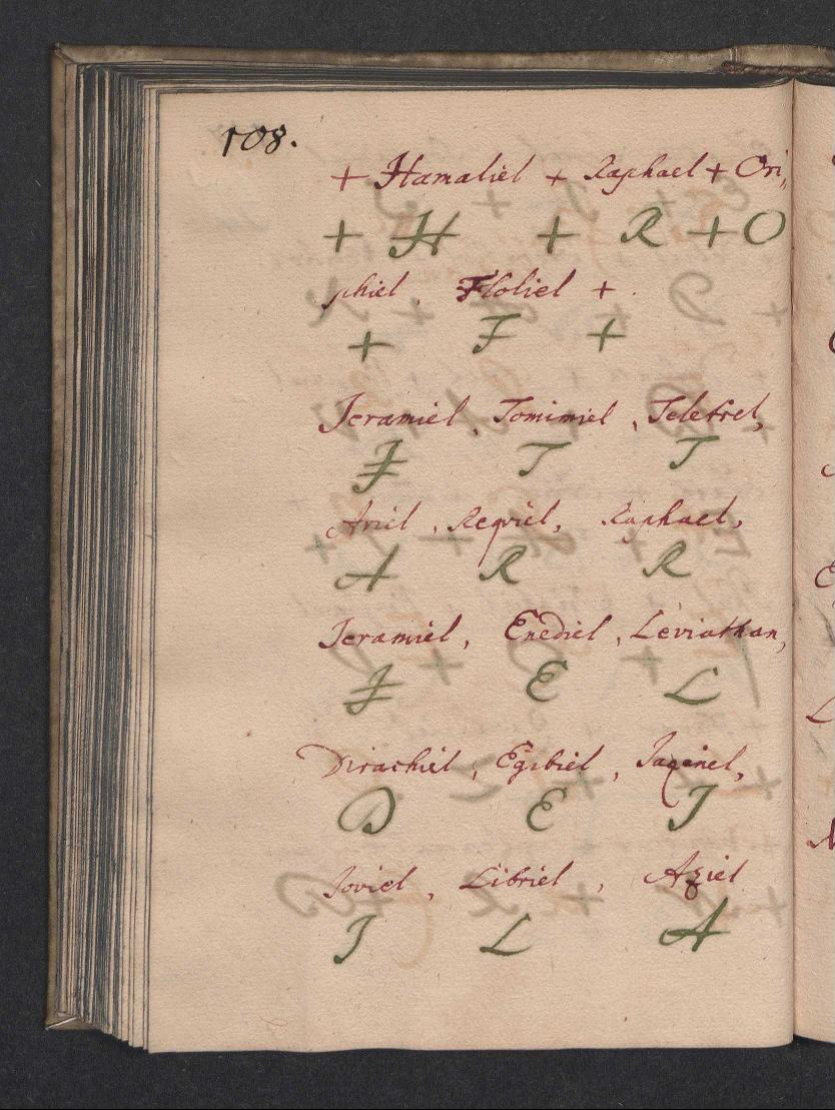 108.
+ Hamaliel + Raphael + Ori,
+ H + R + O
phiel. Floliel +
+ F +
Jeramiel. Tomimiel, Teletrel,
J T T
Ariel, Reqviel, Raphael,
A R R
Jeramiel, Enediel, Leviathan,
J E L
Dirachiel, Egibiel, Jaqinel,
D E J
Joviel, Libriel, Aziel
J L A